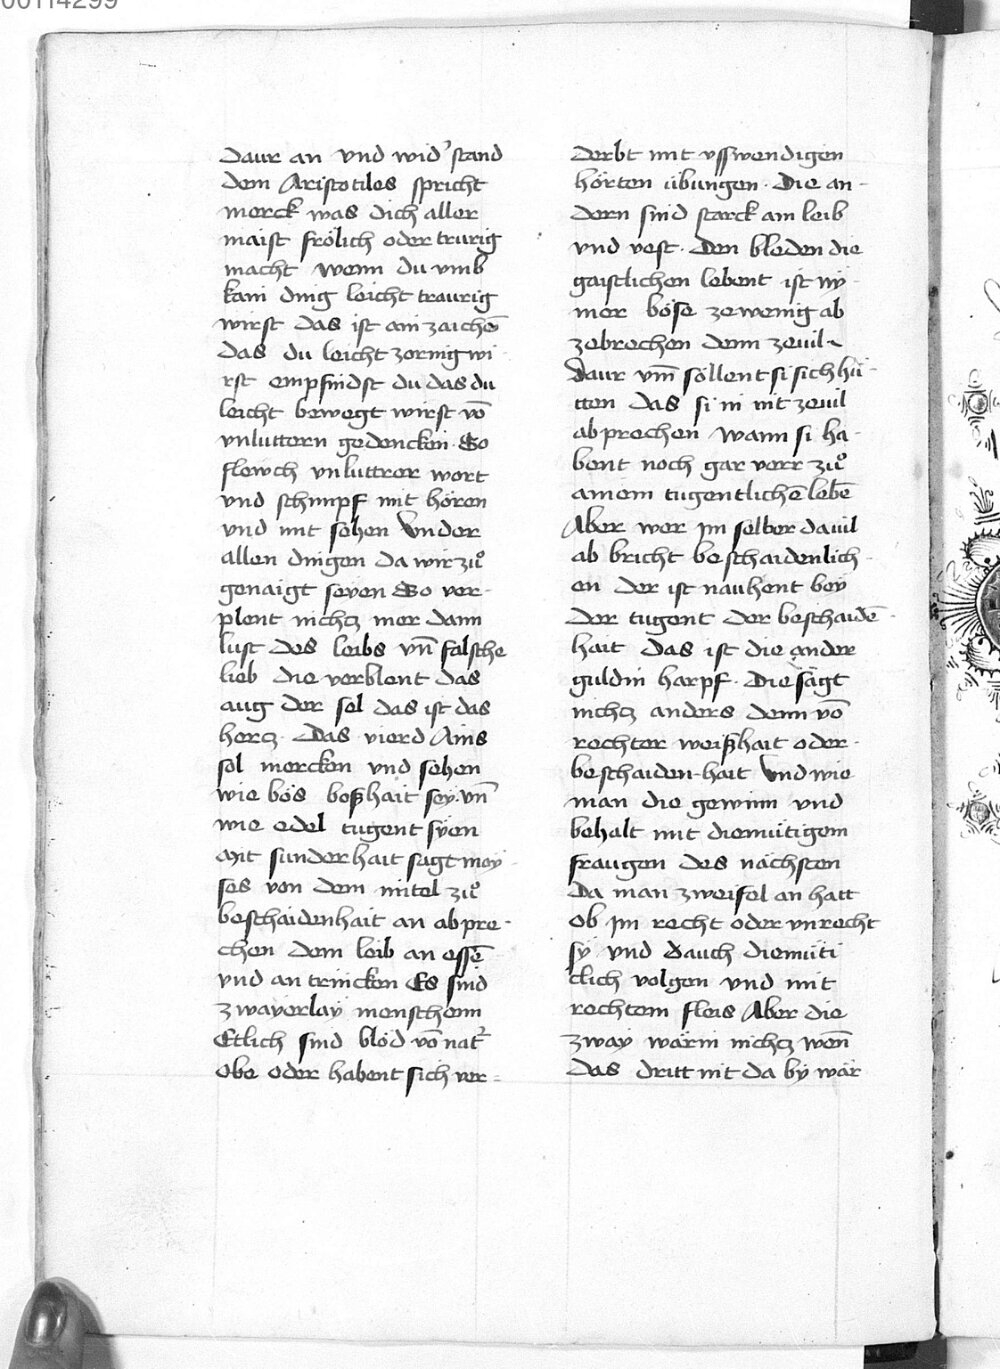 00114299
daur an vnd wid' stand
dem Aristotiles spricht
merck was dich aller
maist frölich oder trurig
macht wenn du vmb
kain ding leicht traurig
wirst das ist ain zaichē
das du leicht zornig wi
rst empfindst du das du
leicht bewegt wirst vō
vnluttern gedencken So
flewch vnluttrer wort
vnd schimpf nit hören
vnd nit sehen Vnder
allen dingen da wir zů
genaigt seyen So ver-
plent nichtz mer dann
lust des leibs vn̄ falsche
lieb die verblent das
aug der sel das ist das
hercz. Das vierd Ains
sol mercken vnd sehen
wie bös boßhait sey. vn̄
wie edel tugent syen
Mit sunderhait sagt moy
ses von dem mitel zů
beschaidenhait an abpre-
chen dem leib an essē
vnd an trincken Es sind
zwayerlay menschenn
Etlich sind blöd vō nat'
obe oder habent sich ver-
derbt mit vsswendigen
hörten übungen. Die an-
dern sind starck am leib
vnd vest. Den bleden die
gaistlichen lebent ist ny-
mer böse ze wenig ab
zebrechen denn zeuil
Daur vm̄ söllent si sich hü-
tten das si in nit zeuil
ab prechen Wann si ha-
bent noch gar verr zů
ainem tugentlichē lebē
Aber wer jm selber da uil
ab bricht beschaidenlich-
en der ist nauhent bey
der tugent der beschaidē-
hait das ist die ander
guldin harpf. Die sägt
nichtz anders denn vō
rechter weißhait oder-
beschaiden-hait Vnd wie
man die gewinn vnd
behalt mit diemütigem
fraugen des nächsten
da man zweifel an hatt
ob jm recht oder vnrecht
sy vnd dauch diemüti
clich volgen vnd mit
rechtem fleis Aber die
zway wärin nichtz wen̄
das dritt nit da by wär